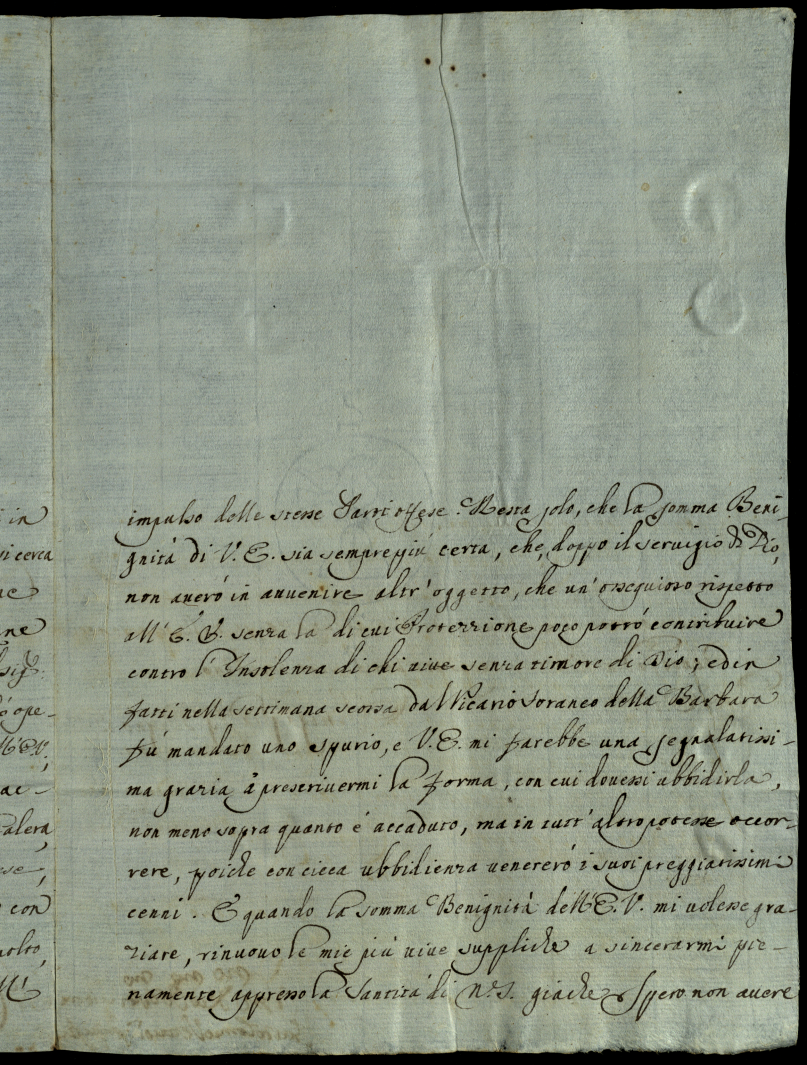 in
si cerca
ne
ne
sig.
ò ope-
ll'E.V.,
ac-
alera,
ese,
con
molto,
ll'
impulso delle stesse Parti offese. Resta solo, che la somma Beni-
gnità di V. E. sia semprepiù certa, che, doppo il servigio di Dio,
non averò in avvenire altr'oggetto, che un'ossequioso rispetto
all' E. V. senza la di cui Protezzione poco potrò contribuire
contro l'Insolenza di chi vive senza timore di Dio; ed in
fatti nella settimana scorsa dal Vicario foraneo della Barbara
fù mandato uno spurio, e V. E. mi farebbe una segnalatissi-
ma grazia à prescrivermi la forma, con cui dovessi ubbidirla,
non meno sopra quanto è accaduto, ma in tutt'altro potesse occor-
rere, poiche con cieca ubbidienza venererò i suoi preggiatissimi
cenni. E quando la somma Benignità dell'E. V. mi volesse gra-
ziare, rinuovo le mie più vive suppliche a sincerarmi pie-
namente appresso la Santità di N.S. giache spero non avere